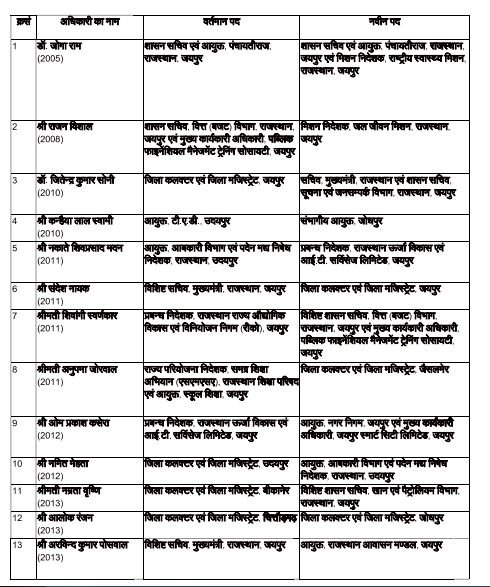 क्रसं अधिकारी का नाम वर्तमान पद नवीन पद
1 डॉ. जोगा राम शासन सचिव एवं आयुक्त, पंचायतीराज, शासन सचिव एवं आयुक्त, पंचायतीराज, राजस्थान,
(2005) राजस्थान, जयपुर जयपुर एवं मिशन निदेशक, राष्ट्रीय स्वास्थ्य मिशन,
राजस्थान, जयपुर
2 श्री राजन विशाल शासन सचिव, वित्त (बजट) विभाग, राजस्थान, मिशन निदेशक, जल जीवन मिशन, राजस्थान,
(2008) जयपुर एवं मुख्य कार्यकारी अधिकारी, पब्लिक जयपुर
फाइनेंशियल मैनेजमेंट ट्रेनिंग सोसायटी, जयपुर
3 डॉ. जितेन्द्र कुमार सोनी जिला कलक्टर एवं जिला मजिस्ट्रेट, जयपुर सचिव, मुख्यमंत्री, राजस्थान एवं शासन सचिव,
(2010) सूचना एवं जनसम्पर्क विभाग, राजस्थान, जयपुर
4 श्री कन्हैया लाल स्वामी आयुक्त, टी.ए.डी., उदयपुर संभागीय आयुक्त, जोधपुर
(2010)
5 श्री नकाते शिवप्रसाद मदन आयुक्त, आबकारी विभाग एवं पदेन मद्य निषेध प्रबन्ध निदेशक, राजस्थान ऊर्जा विकास एवं
(2011) निदेशक, राजस्थान, उदयपुर आई.टी. सर्विसेज लिमिटेड, जयपुर
6 श्री संदेश नायक विशिष्ट सचिव, मुख्यमंत्री, राजस्थान, जयपुर जिला कलक्टर एवं जिला मजिस्ट्रेट, जयपुर
(2011)
7 श्रीमती शिवांगी स्वर्णकार प्रबन्ध निदेशक, राजस्थान राज्य औद्योगिक विशिष्ट शासन सचिव, वित्त (बजट) विभाग,
(2011) विकास एवं विनियोजन निगम (रीको), जयपुर राजस्थान, जयपुर एवं मुख्य कार्यकारी अधिकारी,
पब्लिक फाइनेंशियल मैनेजमेंट ट्रेनिंग सोसायटी,
जयपुर
8 श्रीमती अनुपमा जोरवाल राज्य परियोजना निदेशक, समग्र शिक्षा जिला कलक्टर एवं जिला मजिस्ट्रेट, जैसलमेर
(2011) अभियान (एसएमएसए), राजस्थान शिक्षा परिषद
एवं आयुक्त, स्कूल शिक्षा, जयपुर
9 श्री ओम प्रकाश कसेरा प्रबन्ध निदेशक, राजस्थान ऊर्जा विकास एवं आयुक्त, नगर निगम, जयपुर एवं मुख्य कार्यकारी
(2012) आई.टी. सर्विसेज लिमिटेड, जयपुर अधिकारी, जयपुर स्मार्ट सिटी लिमिटेड, जयपुर
10 श्री नमित मेहता जिला कलक्टर एवं जिला मजिस्ट्रेट, उदयपुर आयुक्त, आबकारी विभाग एवं पदेन मद्य निषेध
(2012) निदेशक, राजस्थान, उदयपुर
11 श्रीमती नम्रता वृष्णि जिला कलक्टर एवं जिला मजिस्ट्रेट, बीकानेर विशिष्ट शासन सचिव, खान एवं पेट्रोलियम विभाग,
(2013) राजस्थान, जयपुर
12 श्री आलोक रंजन जिला कलक्टर एवं जिला मजिस्ट्रेट, चित्तौड़गढ़ जिला कलक्टर एवं जिला मजिस्ट्रेट, जोधपुर
(2013)
13 श्री अरविन्द कुमार पोसवाल विशिष्ट सचिव, मुख्यमंत्री, राजस्थान, जयपुर आयुक्त, राजस्थान आवासन मण्डल, जयपुर
(2013)